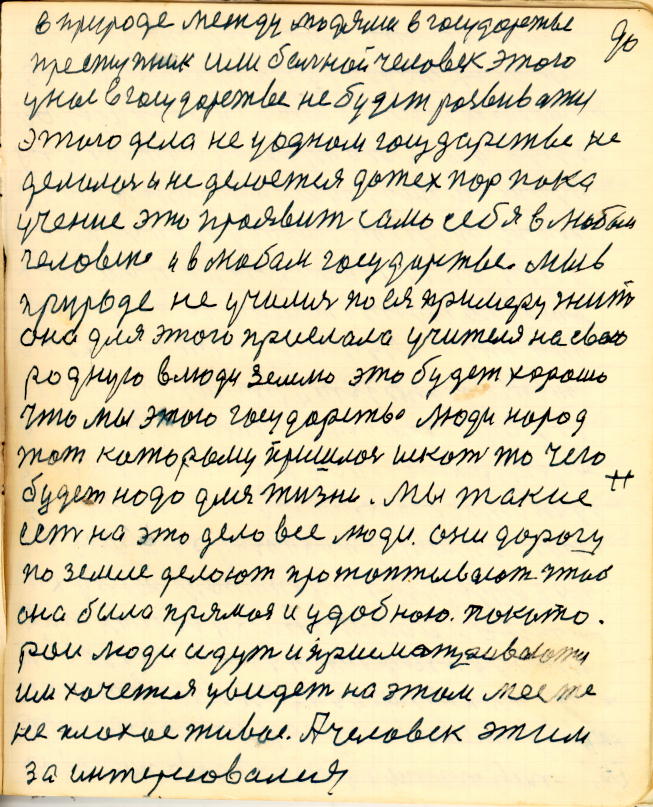 90
в природе между людями в государстве
преступник или больной человек этого
у нас в государстве не будет розвиватся
этого дела не уодном государстве не
делолоя и не делоется дотех пор пока
учение это проявит само себя в любом
человеке и в любам государстве. мы в
природе не училия по ея примеру жить
она для этого прислала учителя на свою
родную в люди землю это будет хорошо
что мы этого государства люди народ
тот которому пришлоя искат то чего
будет надо для жизни. Мы такие
сеть на это дело все люди. они дорогу
по земле делоют протоптывают чтоб
она была прямоя и удобною. покото.
рои люди идут и присматриваются
им хочется увидет на этом месте
не плохое живое. А человек этим
за интересовался